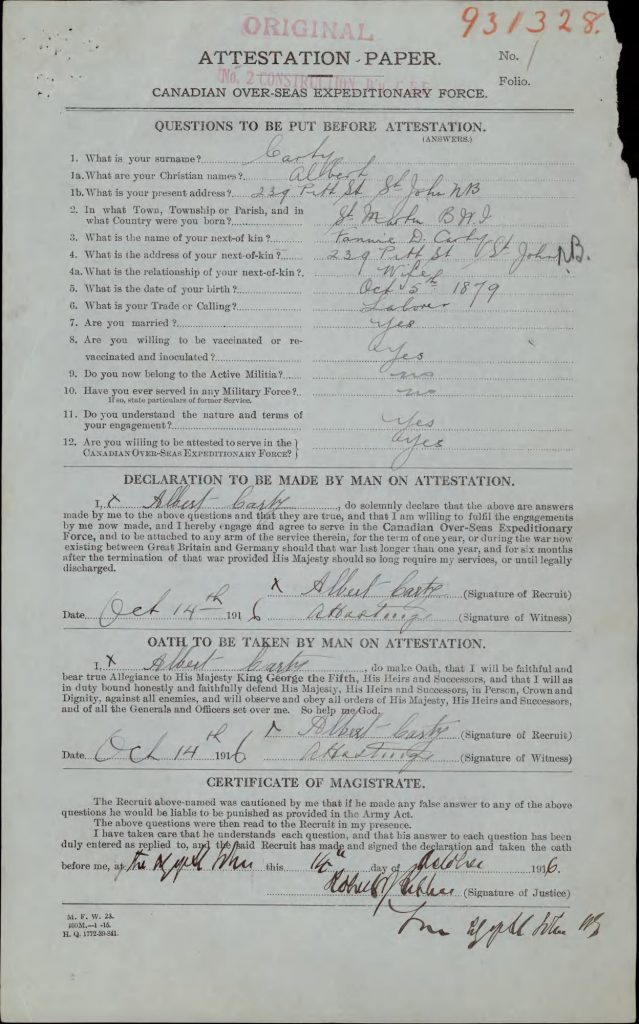 ORIGINAL
931328.
ATTESTATION PAPER.
No. 1
No. 2 CONSTRUCTION B'n C.E.F.
Folio.
CANADIAN OVER-SEAS EXPEDITIONARY FORCE.
QUESTIONS TO BE PUT BEFORE ATTESTATION.
(ANSWERS.)
1. What is your surname? Carty
1a. What are your Christian names? Albert
1b. What is your present address? 239 Pitt St St John NB
2. In what Town, Township or Parish, and in
what Country were you born? St Martin B W I
3. What is the name of your next-of kin? Fannie D. Carty
4. What is the address of your next-of-kin? 239 Pitt St St John N.B.
4a. What is the relationship of your next-of-kin? Wife
5. What is the date of your birth? Oct 5th 1879
6. What is your Trade or Calling? Laborer
7. Are you married? Yes
8. Are you willing to be vaccinated or re-
vaccinated and inoculated? Yes
9. Do you now belong to the Active Militia? no
10. Have you ever served in any Military Force? no
If so, state particulars of former Service.
11. Do you understand the nature and terms of
your engagement? Yes
12. Are you willing to be attested to serve in the
CANADIAN OVER-SEAS EXPEDITIONARY FORCE? Yes
DECLARATION TO BE MADE BY MAN ON ATTESTATION.
I, x Albert Carty, do solemnly declare that the above are answers
made by me to the above questions and that they are true, and that I am willing to fulfil the engagements
by me now made, and I hereby engage and agree to serve in the Canadian Over-Seas Expeditionary
Force, and to be attached to any arm of the service therein, for the term of one year, or during the war now
existing between Great Britain and Germany should that war last longer than one year, and for six months
after the termination of that war provided His Majesty should so long require my services, or until legally
discharged.
x Albert Carty (Signature of Recruit)
Date Oct 14th 1916 (Signature of Witness)
OATH TO BE TAKEN BY MAN ON ATTESTATION.
I, x Albert Carty, do make Oath, that I will be faithful and
bear true Allegiance to His Majesty King George the Fifth, His Heirs and Successors, and that I will as
in duty bound honestly and faithfully defend His Majesty, His Heirs and Successors, in Person, Crown and
Dignity, against all enemies, and will observe and obey all orders of His Majesty, His Heirs and Successors,
and of all the Generals and Officers set over me. So help me God.
x Albert Carty (Signature of Recruit)
Date Oct 14th 1916 (Signature of Witness)
CERTIFICATE OF MAGISTRATE.
The Recruit above-named was cautioned by me that if he made any false answer to any of the above
questions he would be liable to be punished as provided in the Army Act.
The above questions were then read to the Recruit in my presence.
I have taken care that he understands each question, and that his answer to each question has been
duly entered as replied to, and the said Recruit has made and signed the declaration and taken the oath
before me, at the this 14th day of October 1916.
(Signature of Justice)
M. F. W. 23.
H. Q. 1772-39-841.